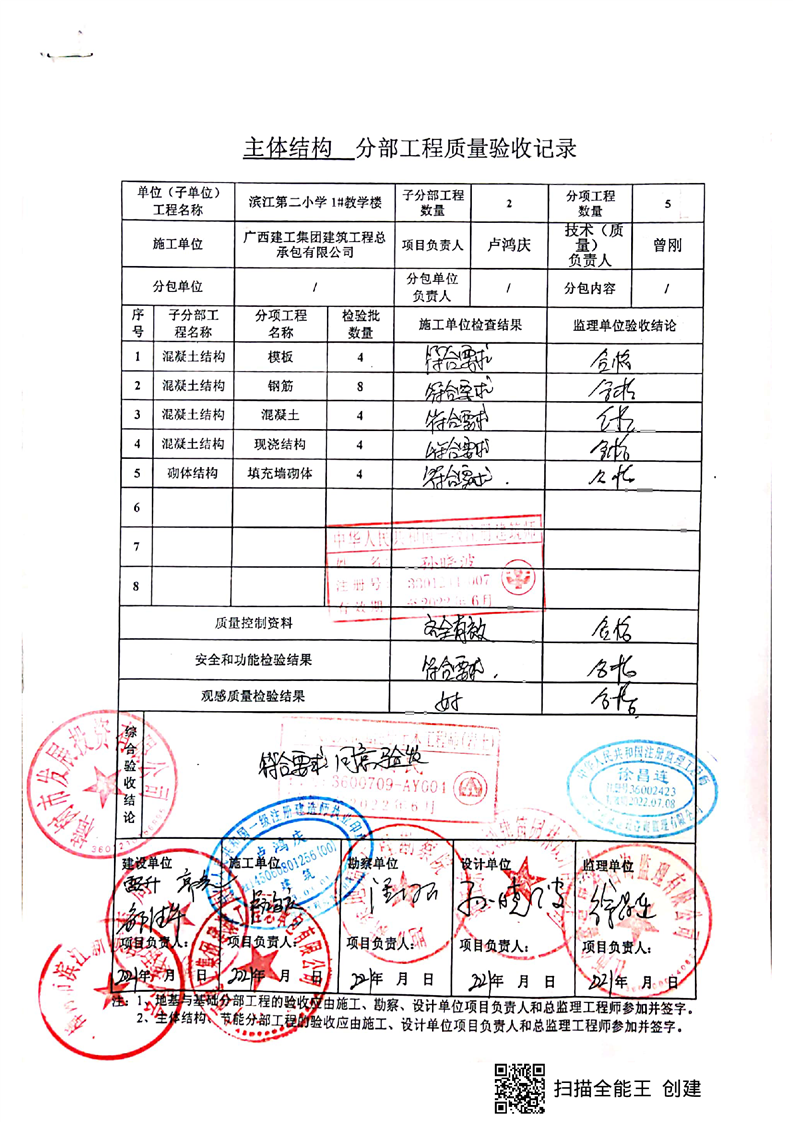 主体结构 分部工程质量验收记录
单位（子单位）工程名称 滨江第二小学 1#教学楼 子分部工程数量 2 分项工程数量 5
施工单位 广西建工集团建筑工程总承包有限公司 项目负责人 卢鸿庆 技术（质量）负责人 曾刚
分包单位 / 分包单位负责人 / 分包内容 /
序号 子分部工程名称 分项工程名称 检验批数量 施工单位检查结果 监理单位验收结论
1 混凝土结构 模板 4 符合要求 合格
2 混凝土结构 钢筋 8 符合要求 合格
3 混凝土结构 混凝土 4 符合要求 合格
4 混凝土结构 现浇结构 4 符合要求 合格
5 砌体结构 填充墙砌体 4 符合要求. 合格
6
7
8
质量控制资料 完全有效 合格
安全和功能检验结果 符合要求. 合格
观感质量检验结果 好 合格.
综合验收结论 符合要求 同意验收
3600709-AY001
2022年6月
中华人民共和国注册监理工程师
徐昌连
36002423
2022.07.08
卢鸿庆
建筑
建设单位 施工单位 勘察单位 设计单位 监理单位
项目负责人： 项目负责人： 项目负责人： 项目负责人： 项目负责人：
2021年 月 日 2021年 月 日 2021年 月 日 2021年 月 日 2021年 月 日
注：1、地基与基础分部工程的验收应由施工、勘察、设计单位项目负责人和总监理工程师参加并签字。
2、主体结构、节能分部工程的验收应由施工、设计单位项目负责人和总监理工程师参加并签字。
扫描全能王 创建